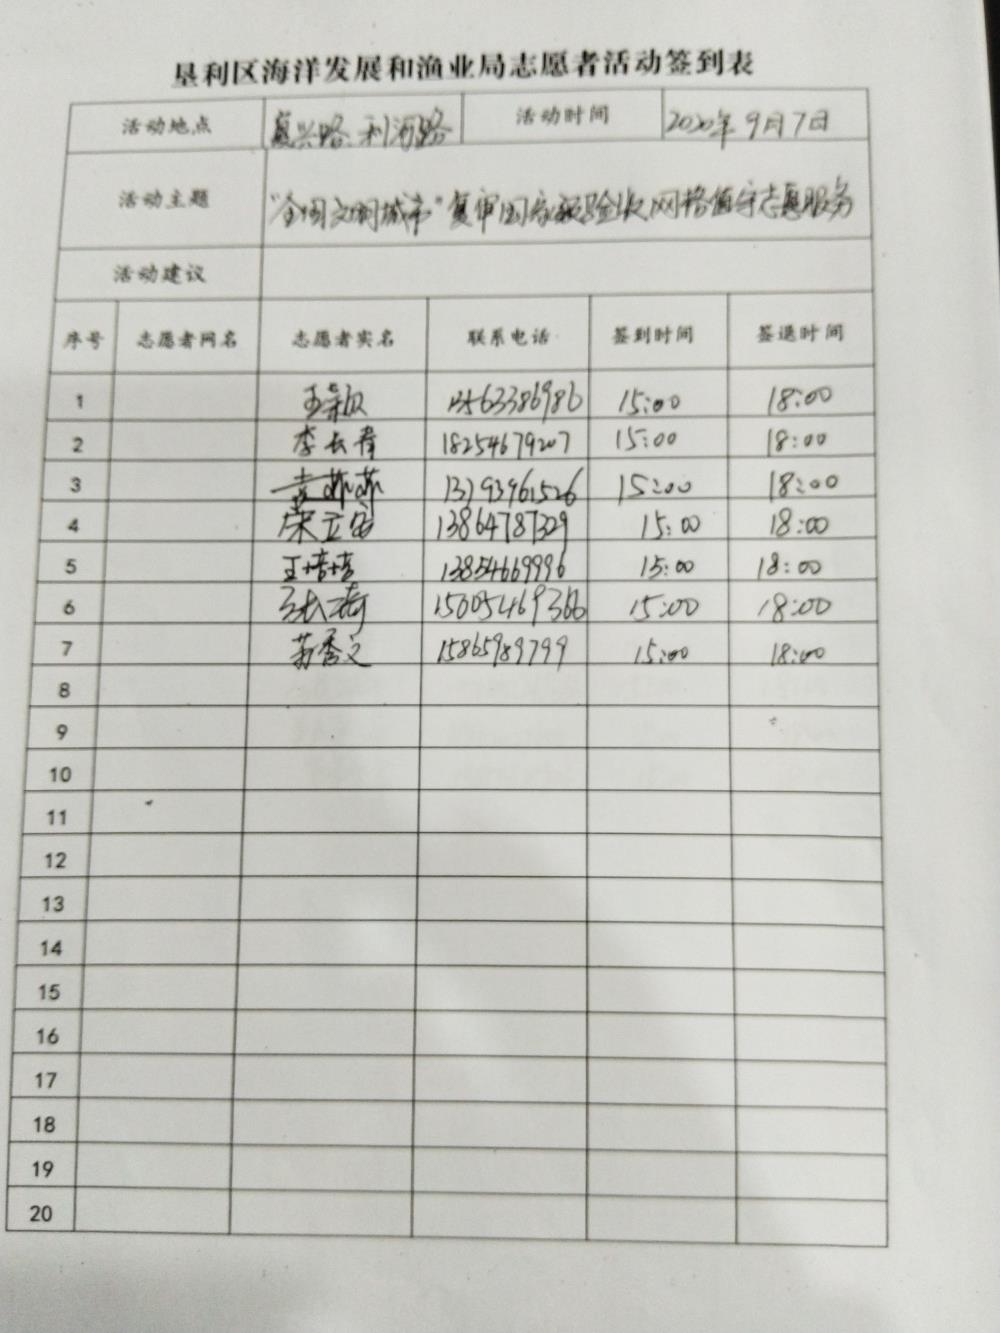 垦利区海洋发展和渔业局志愿者活动签到表
活动地点 复兴路、利河路 活动时间 2020年9月7日
活动主题 "全国文明城市"复审国家级验收网格值守志愿服务
活动建议
序号 志愿者网名 志愿者实名 联系电话 签到时间 签退时间
1 王颖 13563386986 15:00 18:00
2 李长青 18254679207 15:00 18:00
3 袁苏苏 13793961526 15:00 18:00
4 13864787329 15:00 18:00
5 王培培 13854669996 15:00 18:00
6 15005469366 15:00 18:00
7 苏秀文 15865989799 15:00 18:00
8
9
10
11
12
13
14
15
16
17
18
19
20